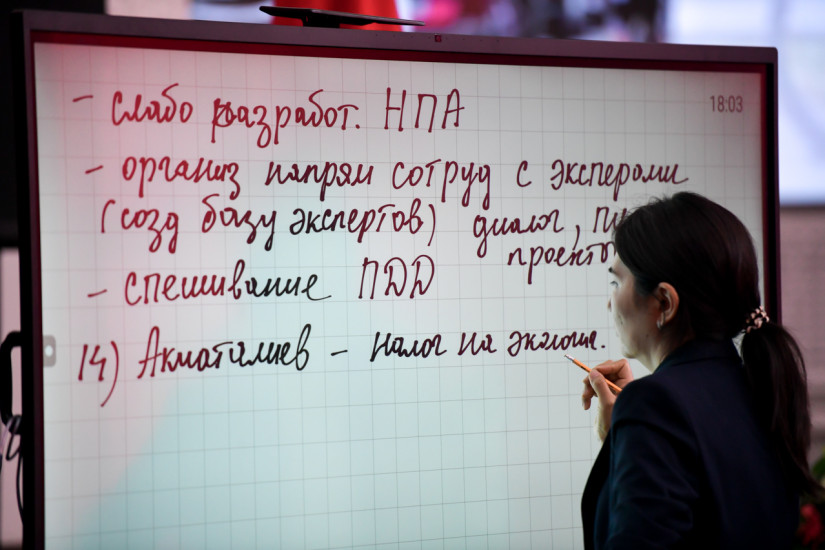 18:03
- слабо разработ. НПА
- организ напрям сотруд с эксперами
(созд базу экспертов) диалог,
проекто
- спешивание ПДД
14) Акматалиев – налог на экологи.